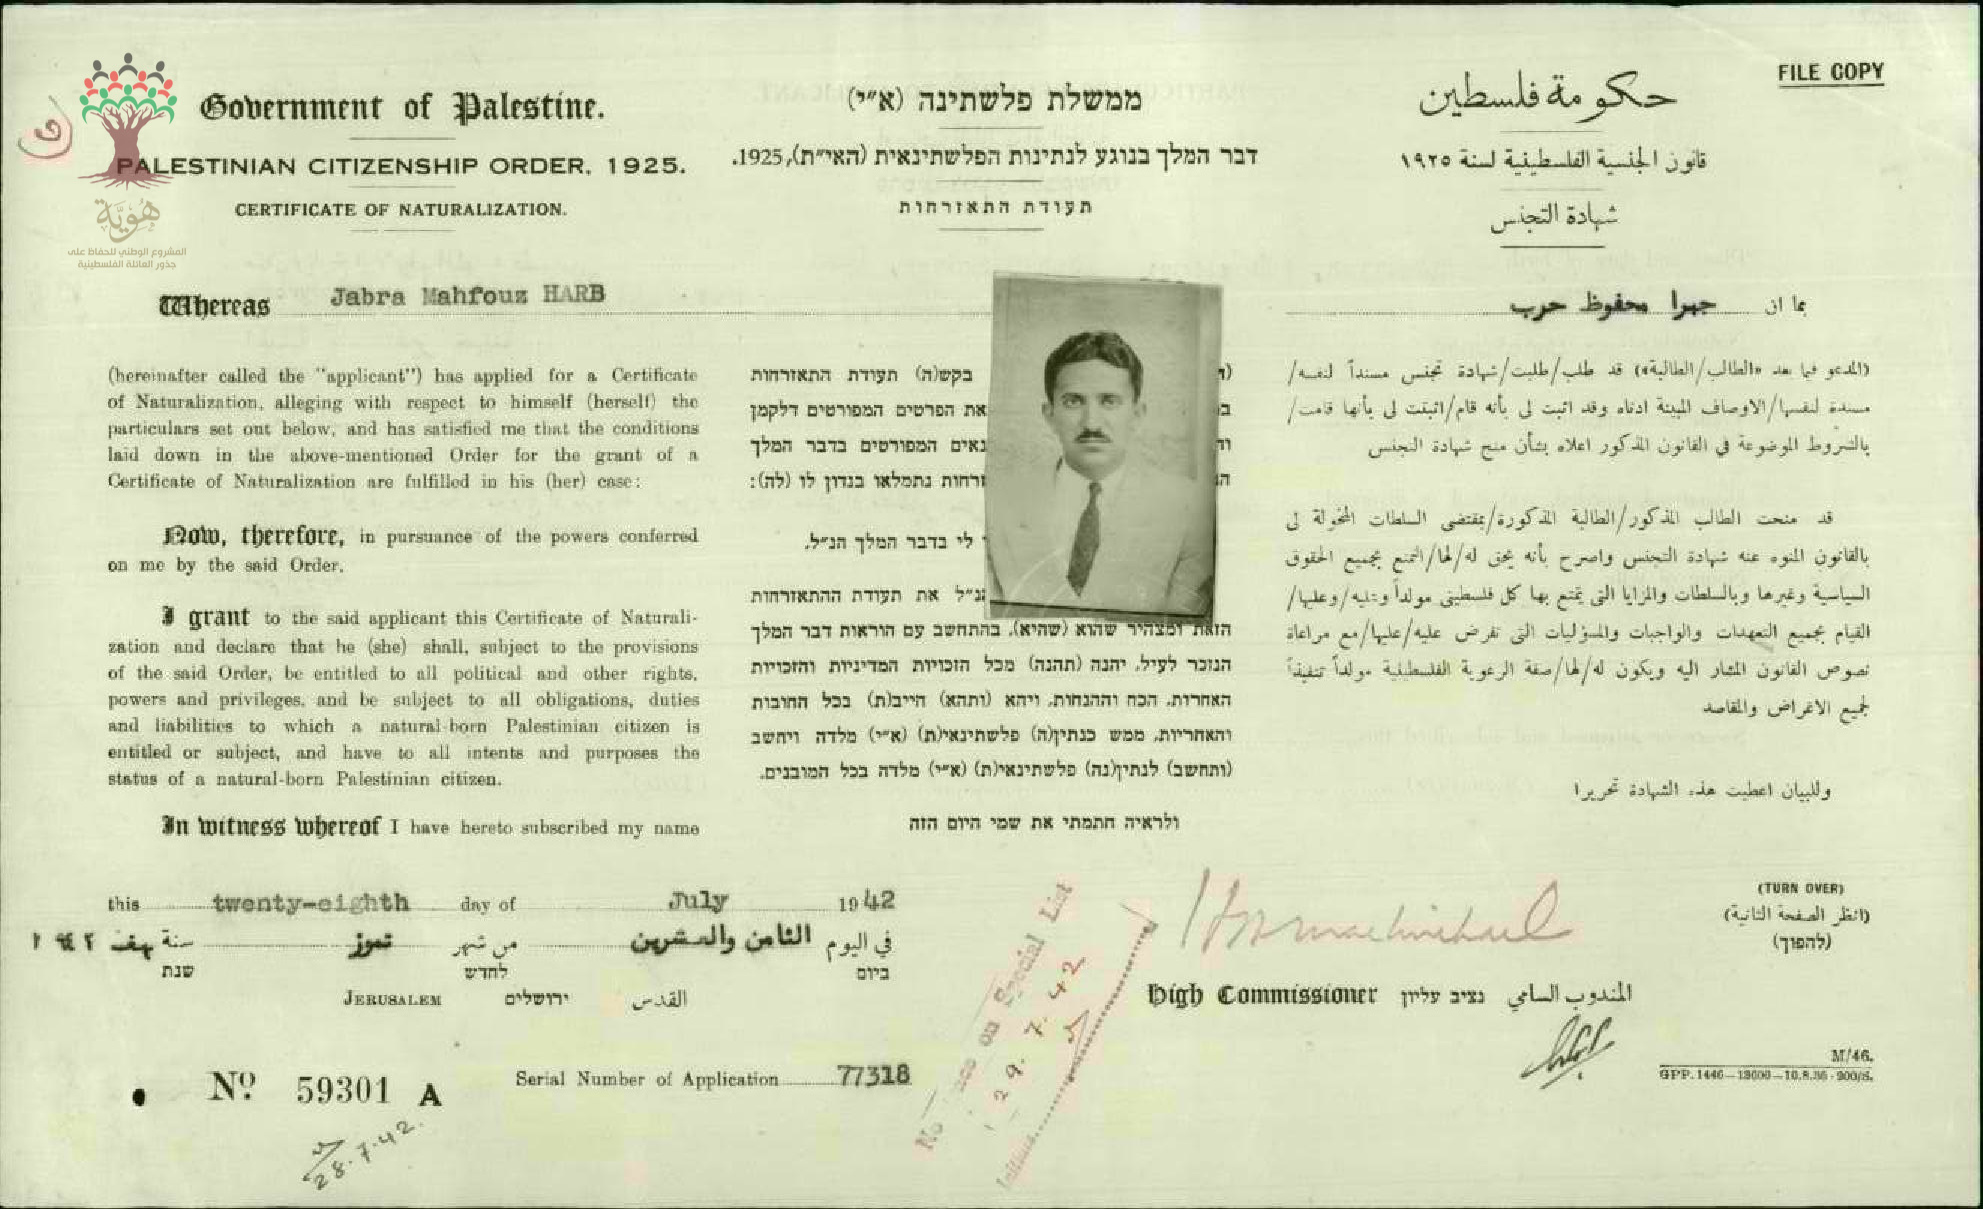 FILE COPY
Government of Palestine.
PALESTINIAN CITIZENSHIP ORDER, 1925.
CERTIFICATE OF NATURALIZATION.
هُوِيَّة
المشروع الوطني للحفاظ على
جذور العائلة الفلسطينية
ממשלת פלשתינה (א״י)
דבר המלך בנוגע לנתינות הפלשתינאית (האי״ת), 1925.
תעודת התאזרחות
حكومة فلسطين
قانون الجنسية الفلسطينية لسنة ١٩٢٥
شهادة التجنس
Whereas Jabra Mahfouz HARB
(hereinafter called the "applicant") has applied for a Certificate
of Naturalization, alleging with respect to himself (herself) the
particulars set out below, and has satisfied me that the conditions
laid down in the above-mentioned Order for the grant of a
Certificate of Naturalization are fulfilled in his (her) case:
Now, therefore, in pursuance of the powers conferred
on me by the said Order.
I grant to the said applicant this Certificate of Naturali-
zation and declare that he (she) shall, subject to the provisions
of the said Order, be entitled to all political and other rights,
powers and privileges, and be subject to all obligations, duties
and liabilities to which a natural-born Palestinian citizen is
entitled or subject, and have to all intents and purposes the
status of a natural-born Palestinian citizen.
In witness whereof I have hereto subscribed my name
בקש(ה) תעודת התאזרחות
את הפרטים המפורטים דלקמן
נאים המפורטים בדבר המלך
זרחות נתמלאו בנדון לו (לה):
לי בדבר המלך הנ״ל,
נ״ל את תעודת ההתאזרחות
הזאת ומצהיר שהוא (שהיא), בהתחשב עם הוראות דבר המלך
הנזכר לעיל, יהנה (תהנה) מכל הזכויות המדיניות והזכויות
האחרות, הכח וההנחות, ויהא (ותהא) חייב(ת) בכל החובות
והאחריות, ממש כנתין(ה) פלשתינאי(ת) (א״י) מלדה ויחשב
(ותחשב) לנתין(נה) פלשתינאי(ת) (א״י) מלדה בכל המובנים.
ולראיה חתמתי את שמי היום הזה
بما ان جبرا محفوظ حرب
(المدعو فيما بعد «الطالب/الطالبة») قد طلب/طلبت/شهادة تجنس مسنداً لنفسه/
مسندة لنفسها/الاوصاف المبينة ادناه وقد اثبت لى بأنه قام/اثبتت لى بأنها قامت/
بالشروط الموضوعة في القانون المذكور اعلاه بشأن منح شهادة التجنس
قد منحت الطالب المذكور/الطالبة المذكورة/بمقتضى السلطات المخولة لى
بالقانون المنوه عنه شهادة التجنس واصرح بأنه يحق له/لها/التمتع بجميع الحقوق
السياسية وغيرها وبالسلطات والمزايا التى يتمتع بها كل فلسطينى مولداً وعليه/وعليها/
القيام بجميع التعهدات والواجبات والمسؤليات التى تفرض عليه/عليها/مع مراعاة
نصوص القانون المشار اليه ويكون له/لها/صفة الرعوية الفلسطينية مولداً تنفيذاً
لجميع الاغراض والمقاصد
وللبيان اعطيت هذه الشهادة تحريرا
this twenty-eighth day of July 1942
في اليوم الثامن والعشرين من شهر تموز سنة
ביום לחדש שנת
JERUSALEM ירושלים القدس
High Commissioner נציב עליון المندوب السامي
(TURN OVER)
(انظر الصفحة الثانية)
(להפוך)
on Special List
29.7.42
Initials
Nº 59301 A
Serial Number of Application 77318
28.7.42.
M/46.
GPP.1446—13000—10.8.36-900/S.